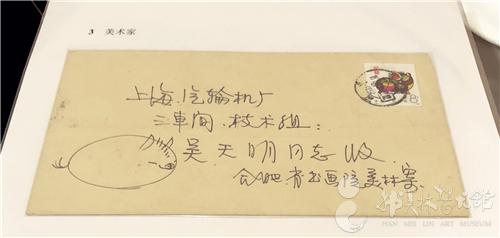 3 美术家
上海汽输机厂
三車间.技术组:
吴天明同志收
合肥省书画院美林寄
8分
韩美林艺术馆
HAN MEI LIN ART MUSEUM